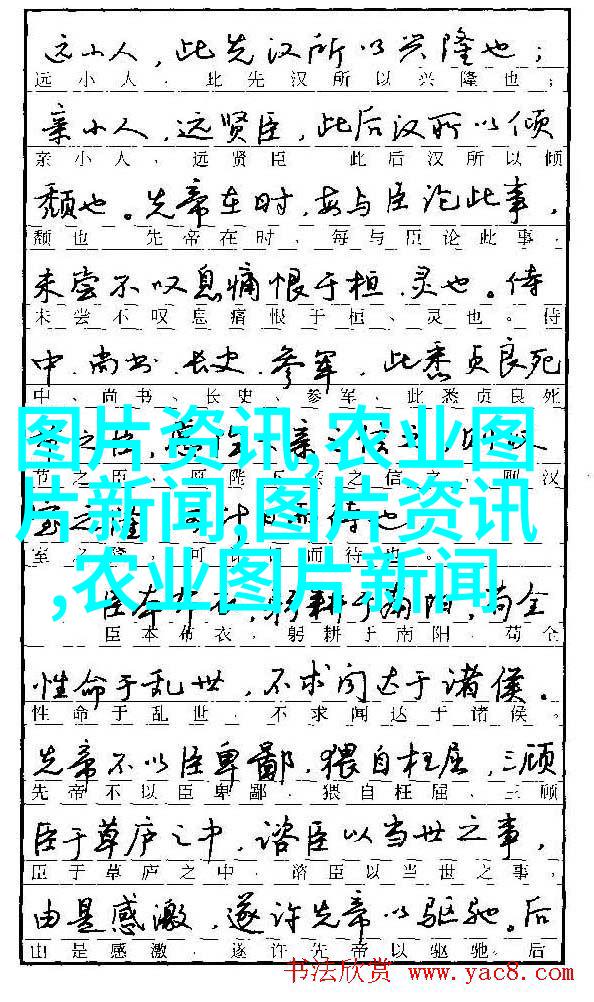 远小人，此先汉所以兴隆也；
远小人，此先汉所以兴隆也；
亲小人，远贤臣，此后汉所以倾
亲小人，远贤臣 此后汉所以倾
颓也。先帝在时，每与臣论此事，
颓也 先帝在时，每与臣论此事，
未尝不叹息痛恨于桓、灵也。侍
未尝不叹息痛恨于桓、灵也。侍
中、尚书、长史、参军，此悉贞良死
中、尚书、长史、参军，此悉贞良死
图片资讯,农业图
片新闻,图片资讯
,农业图片新闻
亲 信
节之臣，愿陛 之信之，则汉
室之隆 计 而待也
室之隆，可 而待也。
臣本布衣，躬耕于南阳，苟全
臣本布衣，躬耕于南阳，苟全
性命于乱世，不求闻达于诸侯。
性命于乱世，不求闻达于诸侯。
先帝不以臣卑鄙，猥自枉屈，三顾
先帝不以臣卑鄙，猥自枉屈、三顾
臣于草庐之中，谘臣以当世之事，
臣于草庐之中，谘臣以当世之事，
由是感激，遂许先帝以驱驰。后
由是感激，遂许先帝以驱驰。后
书法欣赏 www.yac8.com